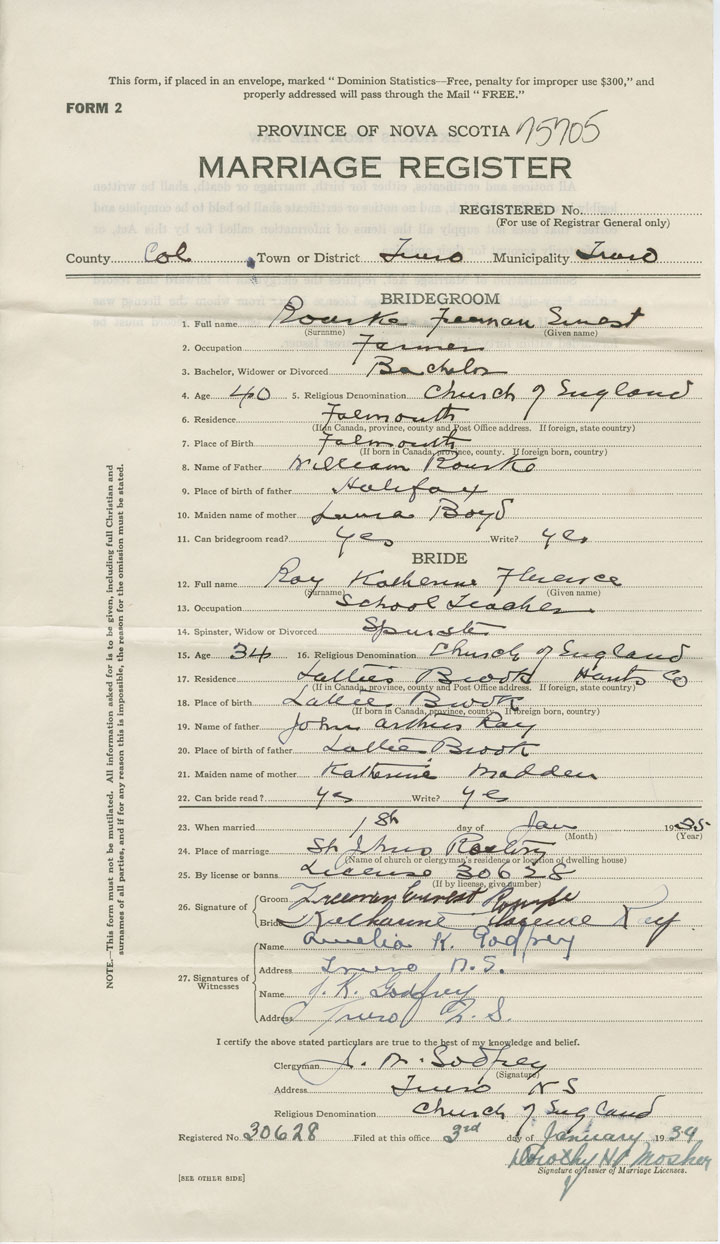 This form, if placed in an envelope, marked " Dominion Statistics—Free, penalty for improper use $300," and
properly addressed will pass through the Mail " FREE."
FORM 2
PROVINCE OF NOVA SCOTIA 75705
MARRIAGE REGISTER
REGISTERED No.
(For use of Registrar General only)
County Col Town or District Truro Municipality Truro
BRIDEGROOM
1. Full name Rourke Freeman Ernest
(Surname) (Given name)
2. Occupation Farmer
3. Bachelor, Widower or Divorced Bachelor
4. Age 40 5. Religious Denomination Church of England
6. Residence Falmouth
(If in Canada, province, county and Post Office address. If foreign, state country)
7. Place of Birth Falmouth
(If born in Canada, province, county. If foreign born, county)
8. Name of Father William Rourke
9. Place of birth of father Halifax
10. Maiden name of mother Laura Boyd
11. Can bridegroom read? yes Write? yes
BRIDE
12. Full name Ray Katherine Florence
(Surname) (Given name)
13. Occupation School Teacher
14. Spinster, Widow or Divorced Spinster
15. Age 34 16. Religious Denomination Church of England
17. Residence Latties Brook Hants Co
(If in Canada, province, county and Post Office address. If foreign, state country)
18. Place of birth Lattie Brook
(If born in Canada, province, county. If foreign born, county)
19. Name of father John Arthur Ray
20. Place of birth of father Lattie Brook
21. Maiden name of mother Katherine Madden
22. Can bride read? yes Write? yes
23. When married 1st day of Jan 1935
(Month) (Year)
24. Place of marriage St Johns Rectory
(Name of church or clergyman's residence or location of dwelling house)
25. By license or banns License 30628
(If by license, give number)
26. Signature of
Groom Freeman Ernest Rourke
Bride Katharine Florence Ray
27. Signatures of Witnesses
Name Amelia K. Godfrey
Address Truro N.S.
Name J. K. Godfrey
Address Truro N.S.
I certify the above stated particulars are true to the best of my knowledge and belief.
Clergyman J. W. Godfrey
(Signature)
Address Truro N S
Religious Denomination Church of England
Registered No. 30628 Filed at this office 3rd day of January 1934
Dorothy H Mosher
Signature of Issuer of Marriage Licenses.
[SEE OTHER SIDE]
NOTE.—This form must not be mutilated. All information asked for is to be given, including full Christian and
surnames of all parties, and if for any reason this is impossible, the reason for the omission must be stated.